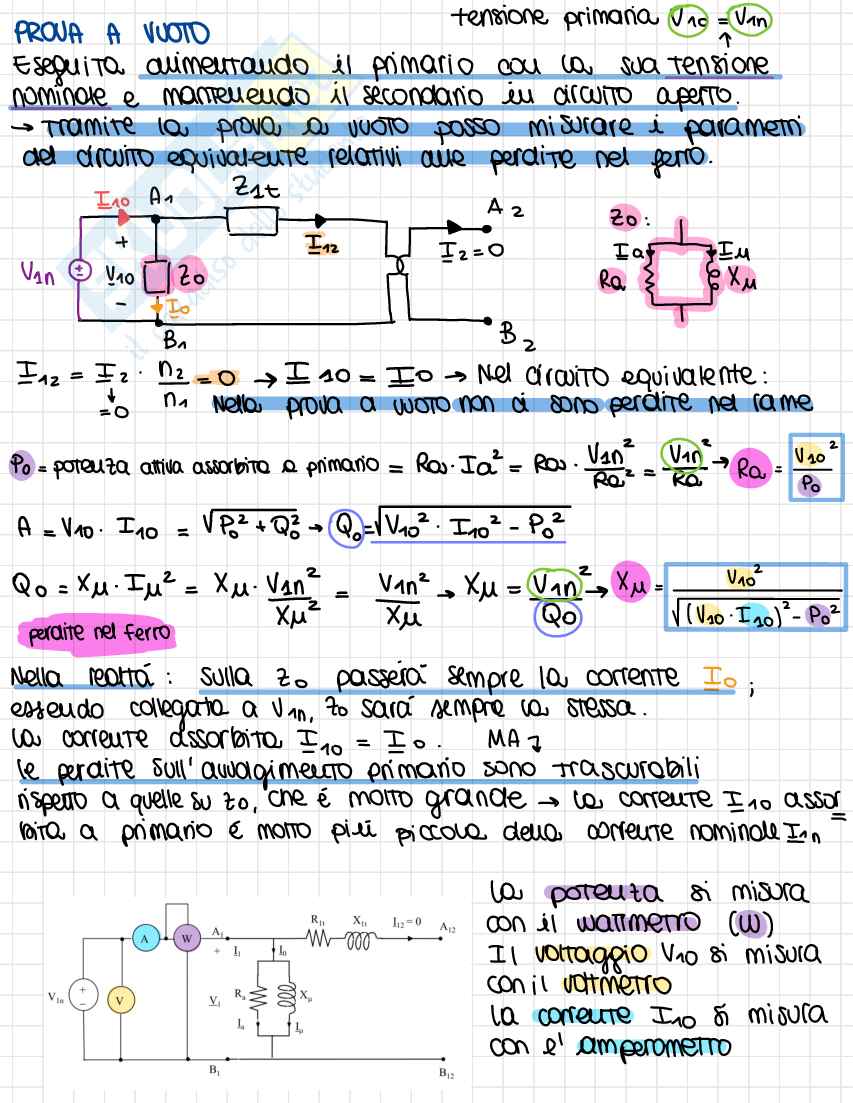 tensione primaria V10 = V1n
PROVA A VUOTO
Eseguita alimentando il primario con la sua tensione
nominale e mantenendo il secondario in circuito aperto.
→ Tramite la prova a vuoto posso misurare i parametri
del circuito equivalente relativi alle perdite nel ferro.
I10 A1 Z1t A2 Z0:
+ I12 I2 = 0 Ia Iμ
V1n V10 Z0 Ra Xμ
− I0
B1 B2
I12 = I2 · n2/n1 = 0 → I10 = I0 → Nel circuito equivalente:
=0 Nella prova a vuoto non ci sono perdite nel rame
P0 = potenza attiva assorbita a primario = Ra · Ia² = Ra · V1n²/Ra² = V1n²/Ra → Ra = V10²/P0
A = V10 · I10 = √P0² + Q0² → Q0 = √V10² · I10² − P0²
Q0 = Xμ · Iμ² = Xμ · V1n²/Xμ² = V1n²/Xμ → Xμ = V1n²/Q0 → Xμ = V10²/√(V10 · I10)² − P0²
perdite nel ferro
Nella realtá: sulla z0 passerá sempre la corrente I0;
essendo collegata a V1n, z0 sará sempre la stessa.
la corrente assorbita I10 = I0. MA ↴
le perdite sull'avvolgimento primario sono trascurabili
rispetto a quelle su z0, che é molto grande → la corrente I10 assor
bita a primario é molto piú piccola della corrente nominale I1n
la potenza si misura
con il wattmetro (W)
Il voltaggio V10 si misura
con il voltmetro
la corrente I10 si misura
con l'amperometro
R1t X1t I12 = 0
A W A1 A12
+ I1 I0
V1n + − V V1 Ra Xμ
Ia Iμ
B1 B12